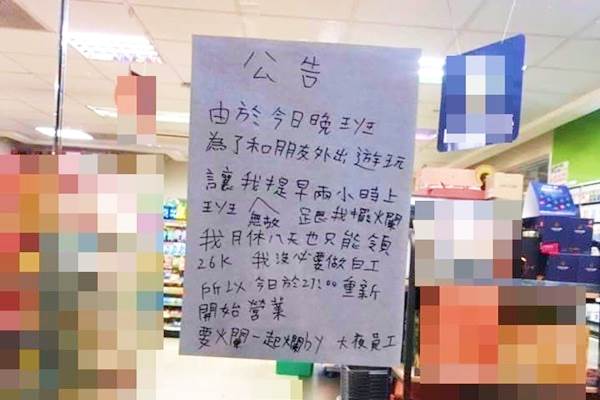 公告
由於今日晚班
為了和朋友外出遊玩
讓我提早兩小時上
班 無故 跟我擺爛
我月休八天也只能領
26K 我沒必要做白工
所以今日於23:00重新
開始營業
要爛一起爛by大夜員工